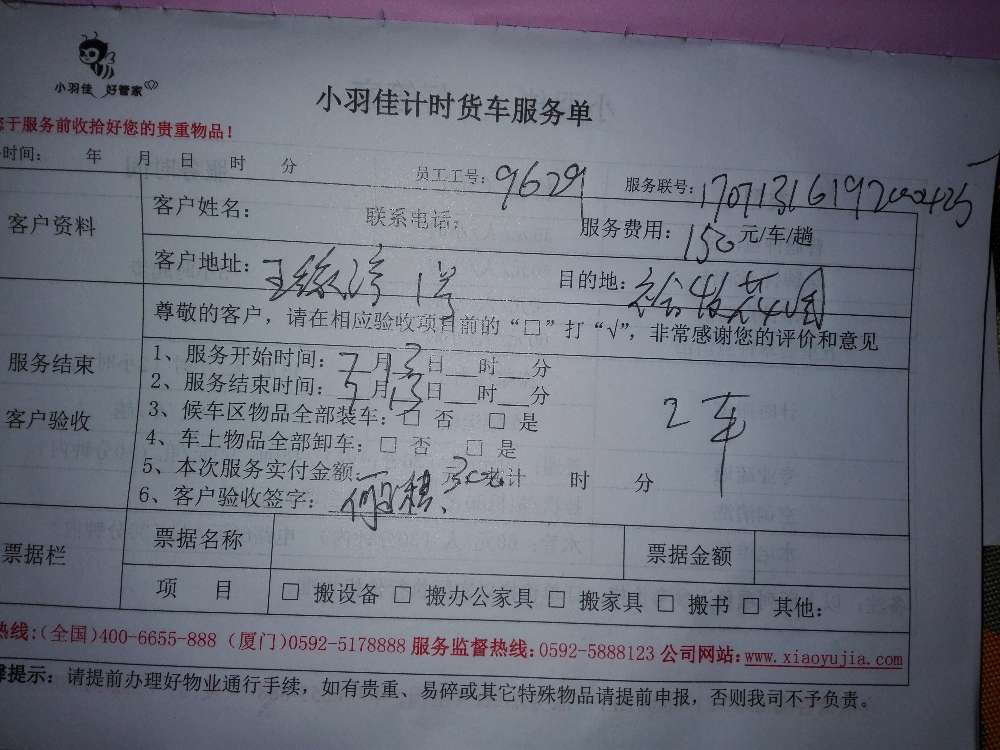 小羽佳 好管家
小羽佳计时货车服务单
于服务前收拾好您的贵重物品！
时间： 年 月 日 时 分 员工工号：9629 服务联号：
客户资料
客户姓名： 联系电话： 服务费用：150元/车/趟
客户地址： 1号 目的地：
尊敬的客户，请在相应验收项目前的“□”打“√”，非常感谢您的评价和意见
服务结束
客户验收
1、服务开始时间：7月13日___时___分
2、服务结束时间：月13日___时___分
2车
3、候车区物品全部装车：□ 否 □ 是
4、车上物品全部卸车：□ 否 □ 是
5、本次服务实付金额： 元，共计 时 分
6、客户验收签字：
票据栏
票据名称 票据金额
项 目 □ 搬设备 □ 搬办公家具 □ 搬家具 □ 搬书 □ 其他：
热线:(全国)400-6655-888 (厦门)0592-5178888 服务监督热线:0592-5888123 公司网站:www.xiaoyujia.com
提示：请提前办理好物业通行手续，如有贵重、易碎或其它特殊物品请提前申报，否则我司不予负责。